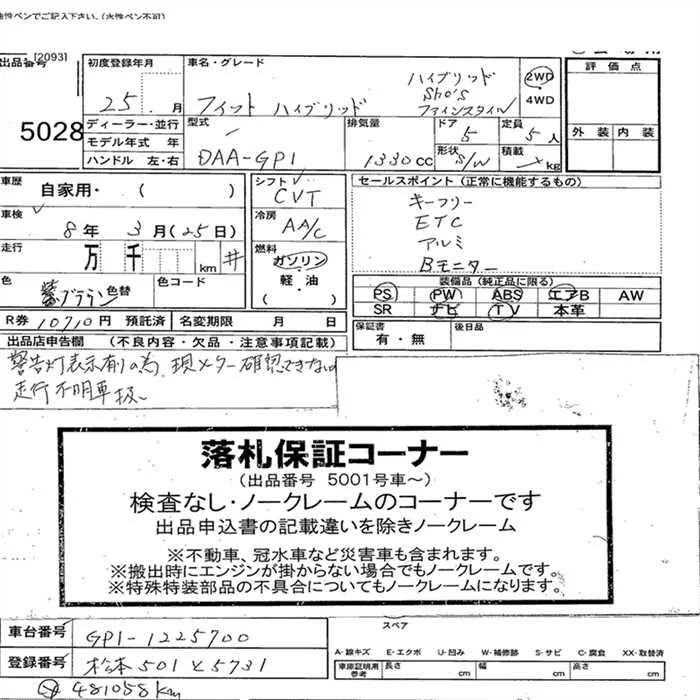 油性ペンでご記入下さい。(水性ペン不可)
[2093]
出品番号 初度登録年月 車名・グレード
5028
25. 月
フィット ハイブリッド
ハイブリッド
She's
ファインスタイル
2WD
4WD
評価点
外装 内装
ディーラー・並行
モデル年式 年
ハンドル 左・右
型式
DAA-GP1
排気量
1330cc
ドア
5
形状
S/W
定員
5人
積載
kg
車歴
自家用・( )
車検
8年 3月(25日)
走行
万 千 km #
色
紫ブラウン 色替
色コード
シフト
CVT
冷房
AA/C
燃料
ガソリン
軽・油
( )
セールスポイント(正常に機能するもの)
キーフリー
ETC
アルミ
Bモニター
装備品(純正品に限る)
PS PW ABS エアB AW
SR ナビ TV 本革
R券 10710円 預託済 名変期限 月 日
保証書
有・無
後日品
出品店申告欄 (不良内容・欠品・注意事項記載)
警告灯表示有りの為、現メーター確認できない
走行不明車扱い
落札保証コーナー
(出品番号 5001号車〜)
検査なし・ノークレームのコーナーです
出品申込書の記載違いを除きノークレーム
※不動車、冠水車など災害車も含まれます。
※搬出時にエンジンが掛からない場合でもノークレームです。
※特殊特装部品の不具合についてもノークレームになります。
車台番号 GP1-1225700
登録番号 松本501 と 5731
481058km
スペア
A-線キズ E-エクボ U-凹み W-補修跡 S-サビ C-腐食 XX-取替済
車庫証明用
参考
長さ cm 幅 cm 高さ cm